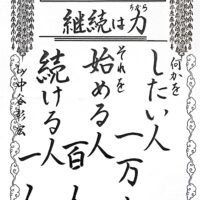 継続は力
ちから
何かを
したい人
一万
それを
始める人
百人
続ける人
一人
中谷彰宏